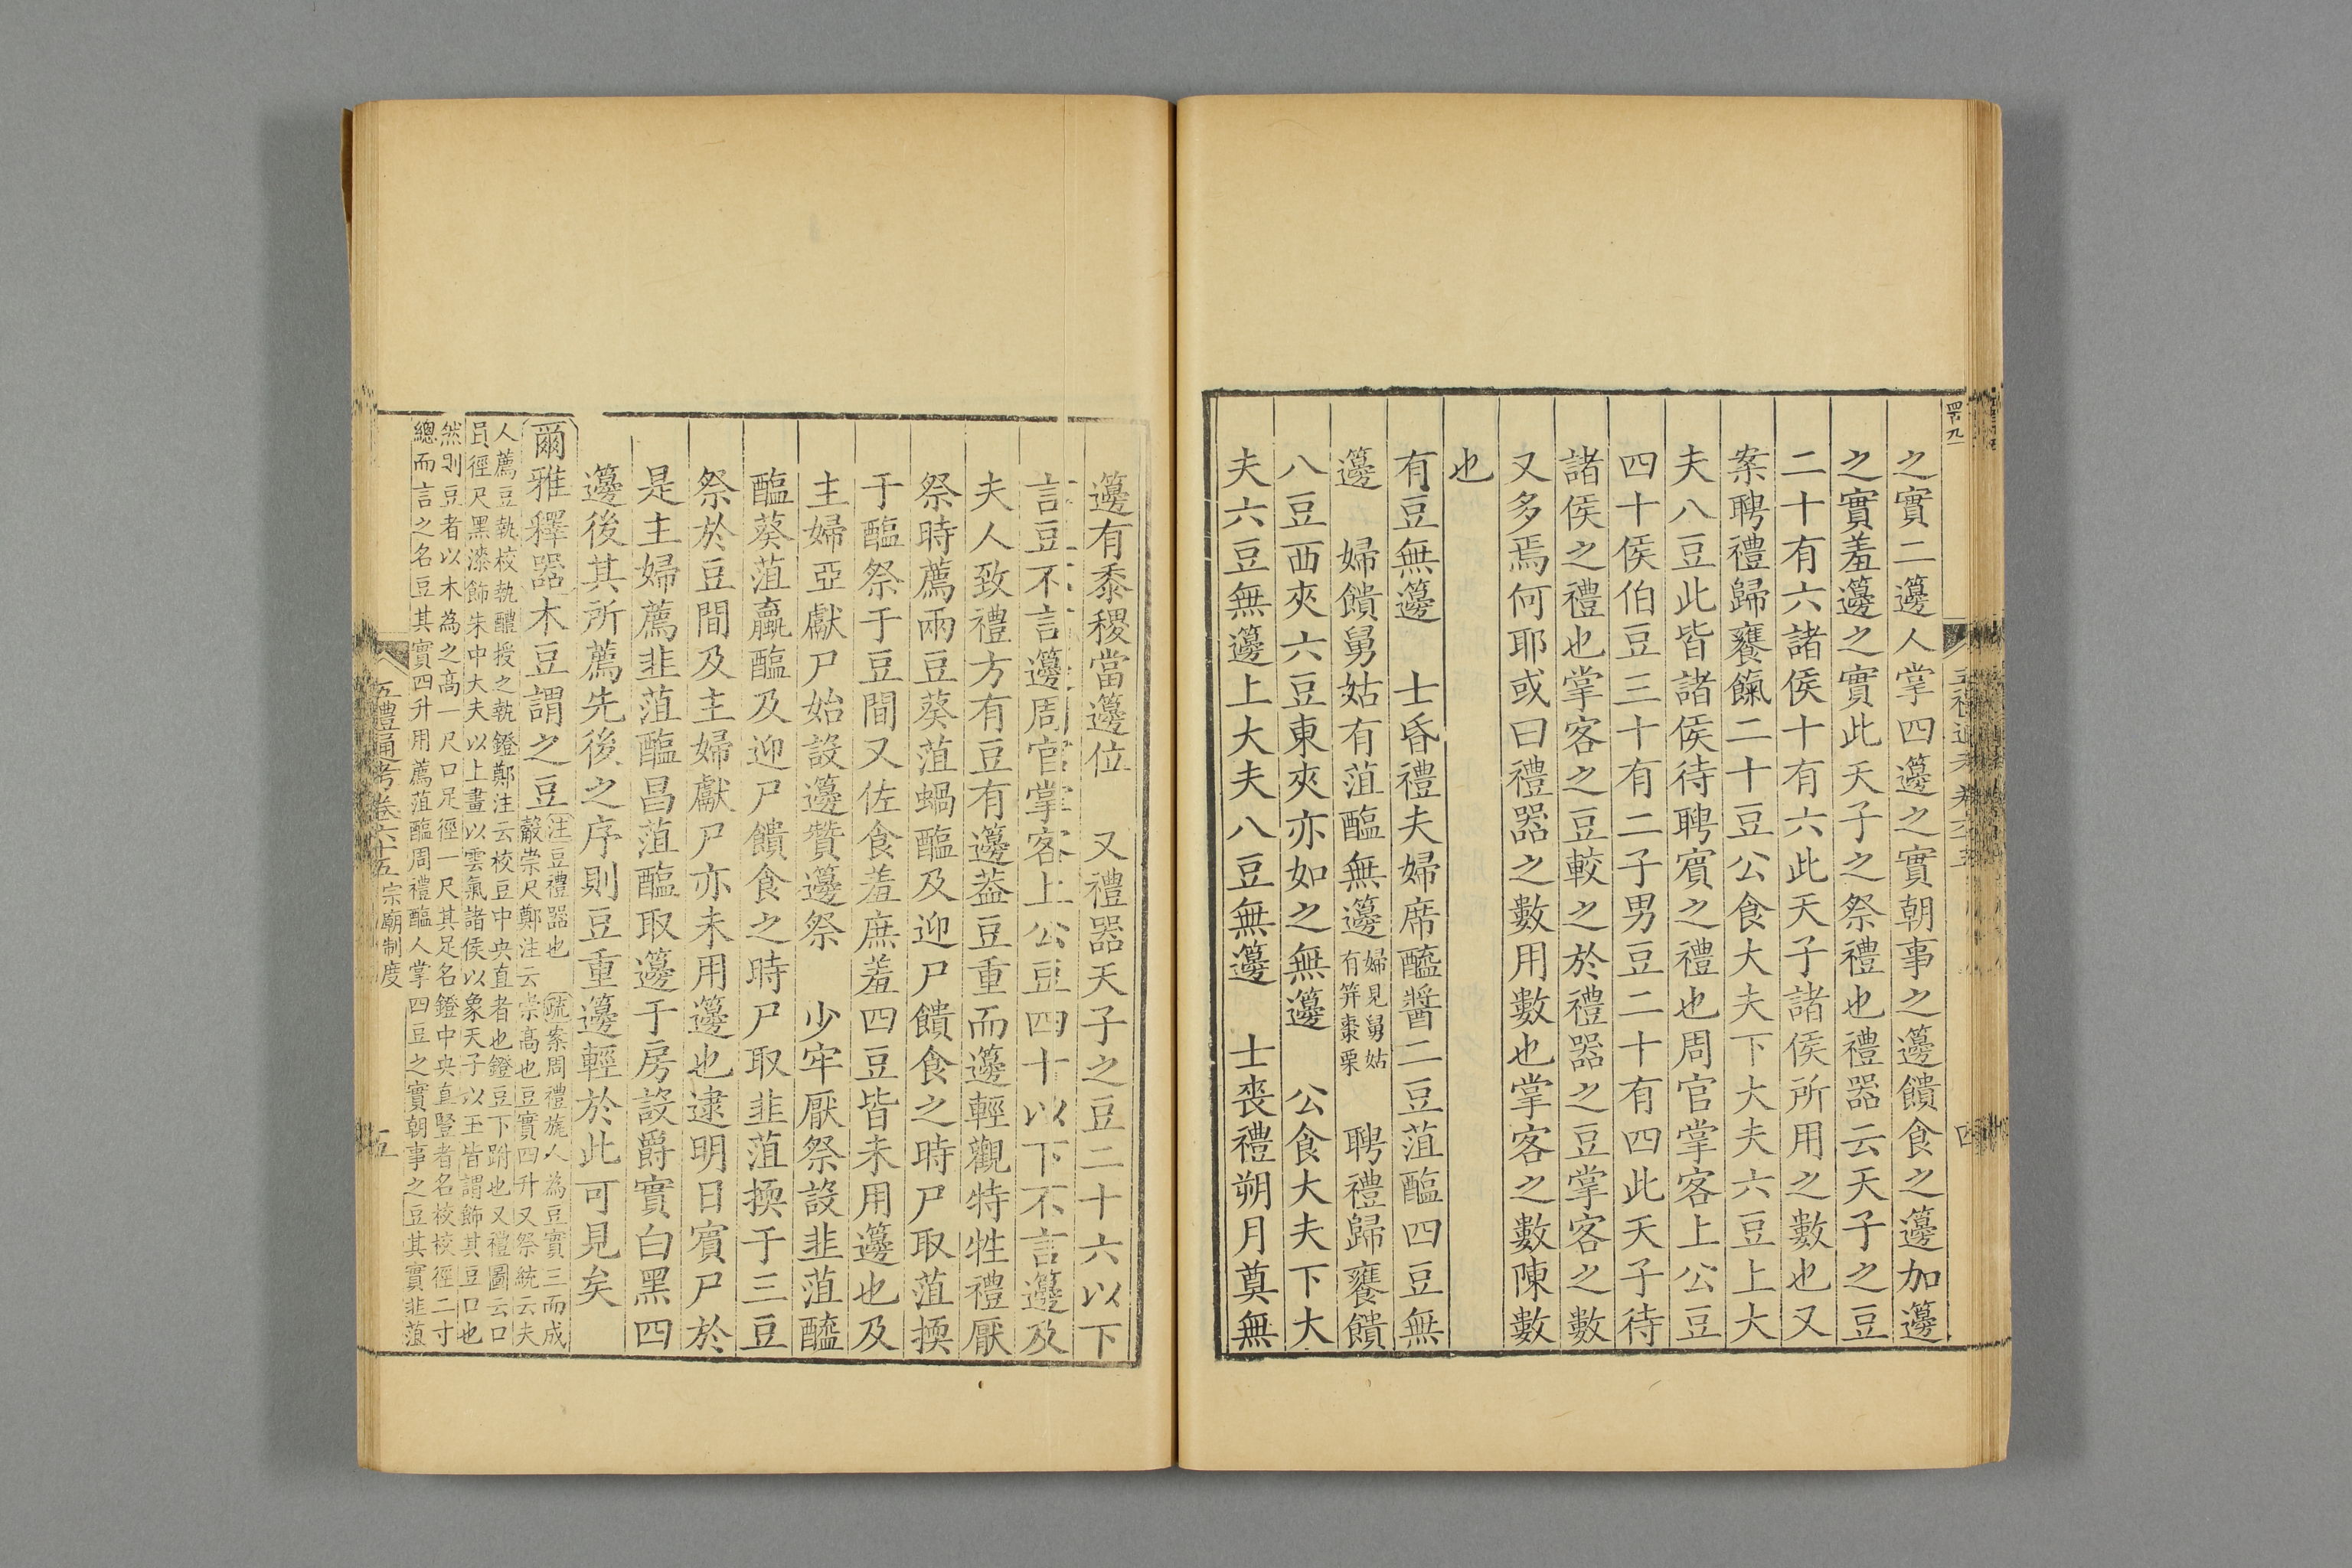 之實二籩人掌四籩之實朝事之籩饋食之籩加籩
之實羞籩之實此天子之祭禮也禮器云天子之豆
二十有六諸侯十有六此天子諸侯所用之數也又
案聘禮歸饔餼二十豆公食大夫下大夫六豆上大
夫八豆此皆諸侯待聘賔之禮也周官掌客上公豆
四十侯伯豆三十有二子男豆二十有四此天子待
諸侯之禮也掌客之豆較之於禮器之豆掌客之數
又多焉何耶或曰禮器之數用數也掌客之數陳數
也
有豆無籩 士昏禮夫婦席醯醬二豆菹醢四豆無
籩 婦饋舅姑有菹醢無籩婦見舅姑有笲棗栗 聘禮歸饔饋
八豆西夾六豆東夾亦如之無籩 公食大夫下大
夫六豆無籩上大夫八豆無籩 士喪禮朔月奠無
籩有黍稷當籩位 又禮器天子之豆二十六以下
言豆不言籩周官掌客上公豆四十以下不言籩及
夫人致禮方有豆有籩葢豆重而籩輕觀特牲禮厭
祭時薦兩豆葵菹蝸醢及迎尸饋食之時尸取菹㨎
于醢祭于豆間又佐食羞庶羞四豆皆未用籩也及
主婦亞獻尸始設籩贊籩祭 少牢厭祭設韭菹醯
醢葵菹蠃醢及迎尸饋食之時尸取韭菹㨎于三豆
祭於豆間及主婦獻尸亦未用籩也逮明日賔尸於
是主婦薦韭菹醢昌菹醢取籩于房設爵實白黑四
籩後其所薦先後之序則豆重籩輕於此可見矣
爾雅釋器木豆謂之豆注豆禮器也 疏案周禮旊人為豆實三而成
觳崇尺鄭注云崇高也豆實四升又祭統云夫
人薦豆執校執醴授之執鐙鄭注云校豆中央直者也鐙豆下跗也又禮圖云口
員徑尺黑漆飾朱中大夫以上畫以雲氣諸侯以象天子以玉皆謂飾其豆口也
然則豆者以木為之高一尺口足徑一尺其足名鐙中央直豎者名校校徑二寸
總而言之名豆其實四升用薦菹醢周禮醢人掌四豆之實朝事之豆其實韭菹
五禮通考卷六十五宗廟制度 五